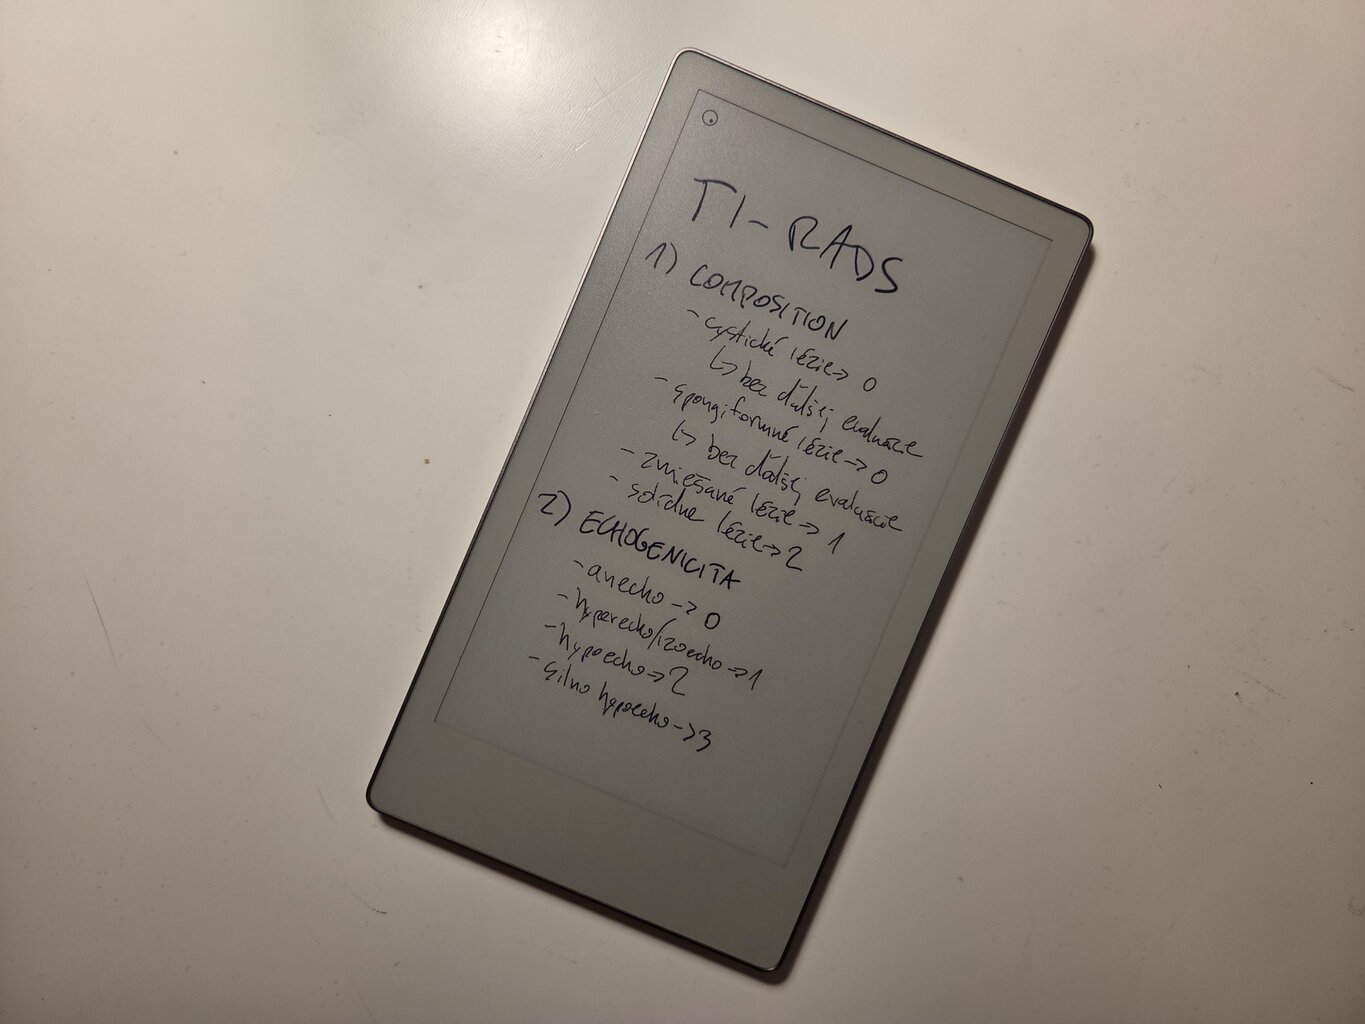 TI-RADS
1) COMPOSITION
- cystické lézie -> 0
↳ bez ďalšej evaluácie
- spongiformné lézie -> 0
↳ bez ďalšej evaluácie
- zmiešané lézie -> 1
- solídne lézie -> 2
2) ECHOGENICITA
- anecho -> 0
- hyperecho/izoecho -> 1
- hypoecho -> 2
- silno hypoecho -> 3